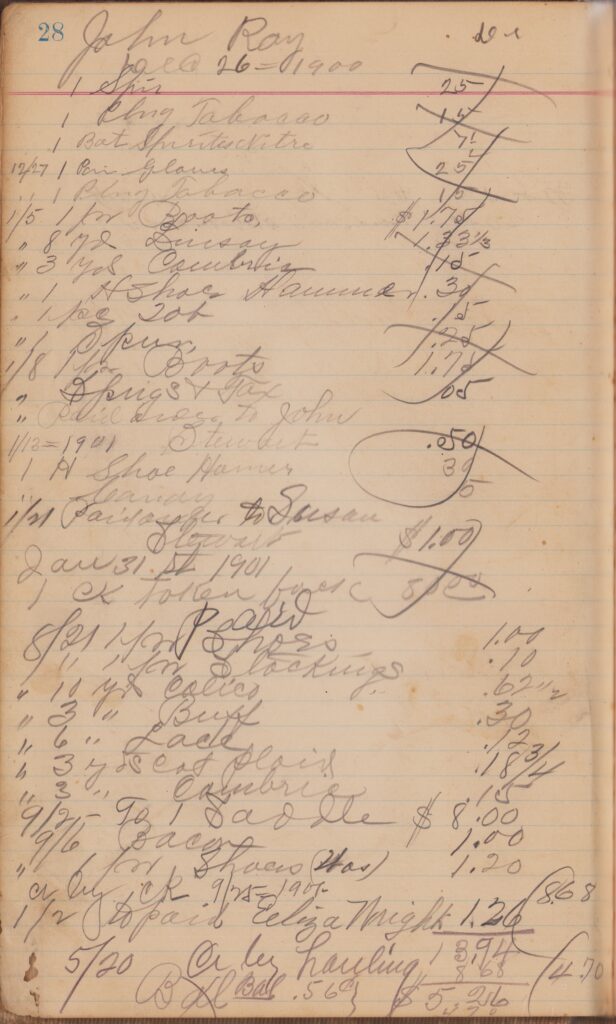 28 John Ray Dr
Dec 26 = 1900
1 Spur 25
1 Plug Tabacco 15
1 Bot Spirits Nitre
12/27 1 Pair Gloves 25
" 1 Plug Tabacco 15
1/5 1 pr Boots, $1.75
" 8 yd Linsay 1.33 1/3
" 3 yds Cambric .15
" 1 H Shoe Hammer .30
" 1 Tob .15
" 1 Spur, .25
1/8 1 pr Boots 1.75
" Sprigs & Tax 05
" Paid over to John
1/13 = 1901 Stewart .50
1 H Shoe Hamer 30
" Candy 5
1/21 Paid to Susan
Stewart $1.00
Jan 31 St 1901
1 CK token back
Paid
8/21 1 pr Shoes 1.00
" " 1 pr Stockings .10
" 10 yds Calico .62
" 3 " Buff .30
" 6 " Lace .12
" 3 yds Cot Plaid .18 3/4
" 3 " Cambric .15
9/25 - To 1 Saddle $8.00
9/6 Bacon 1.00
" 1 pr Shoes 1.20
Cr by CK 9/25 = 1901. 8.68
1/2 to paid Eliza Wright 1.26
13.94
5/20 Cr by hauling 8.68 4.70
Bal Bal .56 $5.26